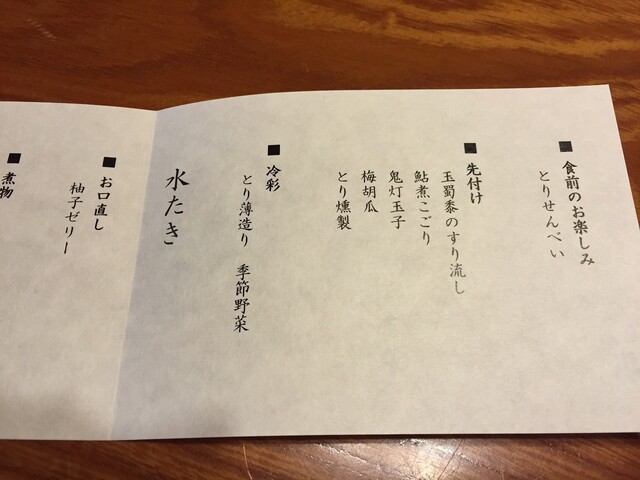 ■ 食前のお楽しみ
とりせんべい
■ 先付け
玉蜀黍のすり流し
鮎煮こごり
鬼灯玉子
梅胡瓜
とり燻製
■ 冷彩
とり薄造り　季節野菜
水たき
■ お口直し
柚子ゼリー
■ 煮物